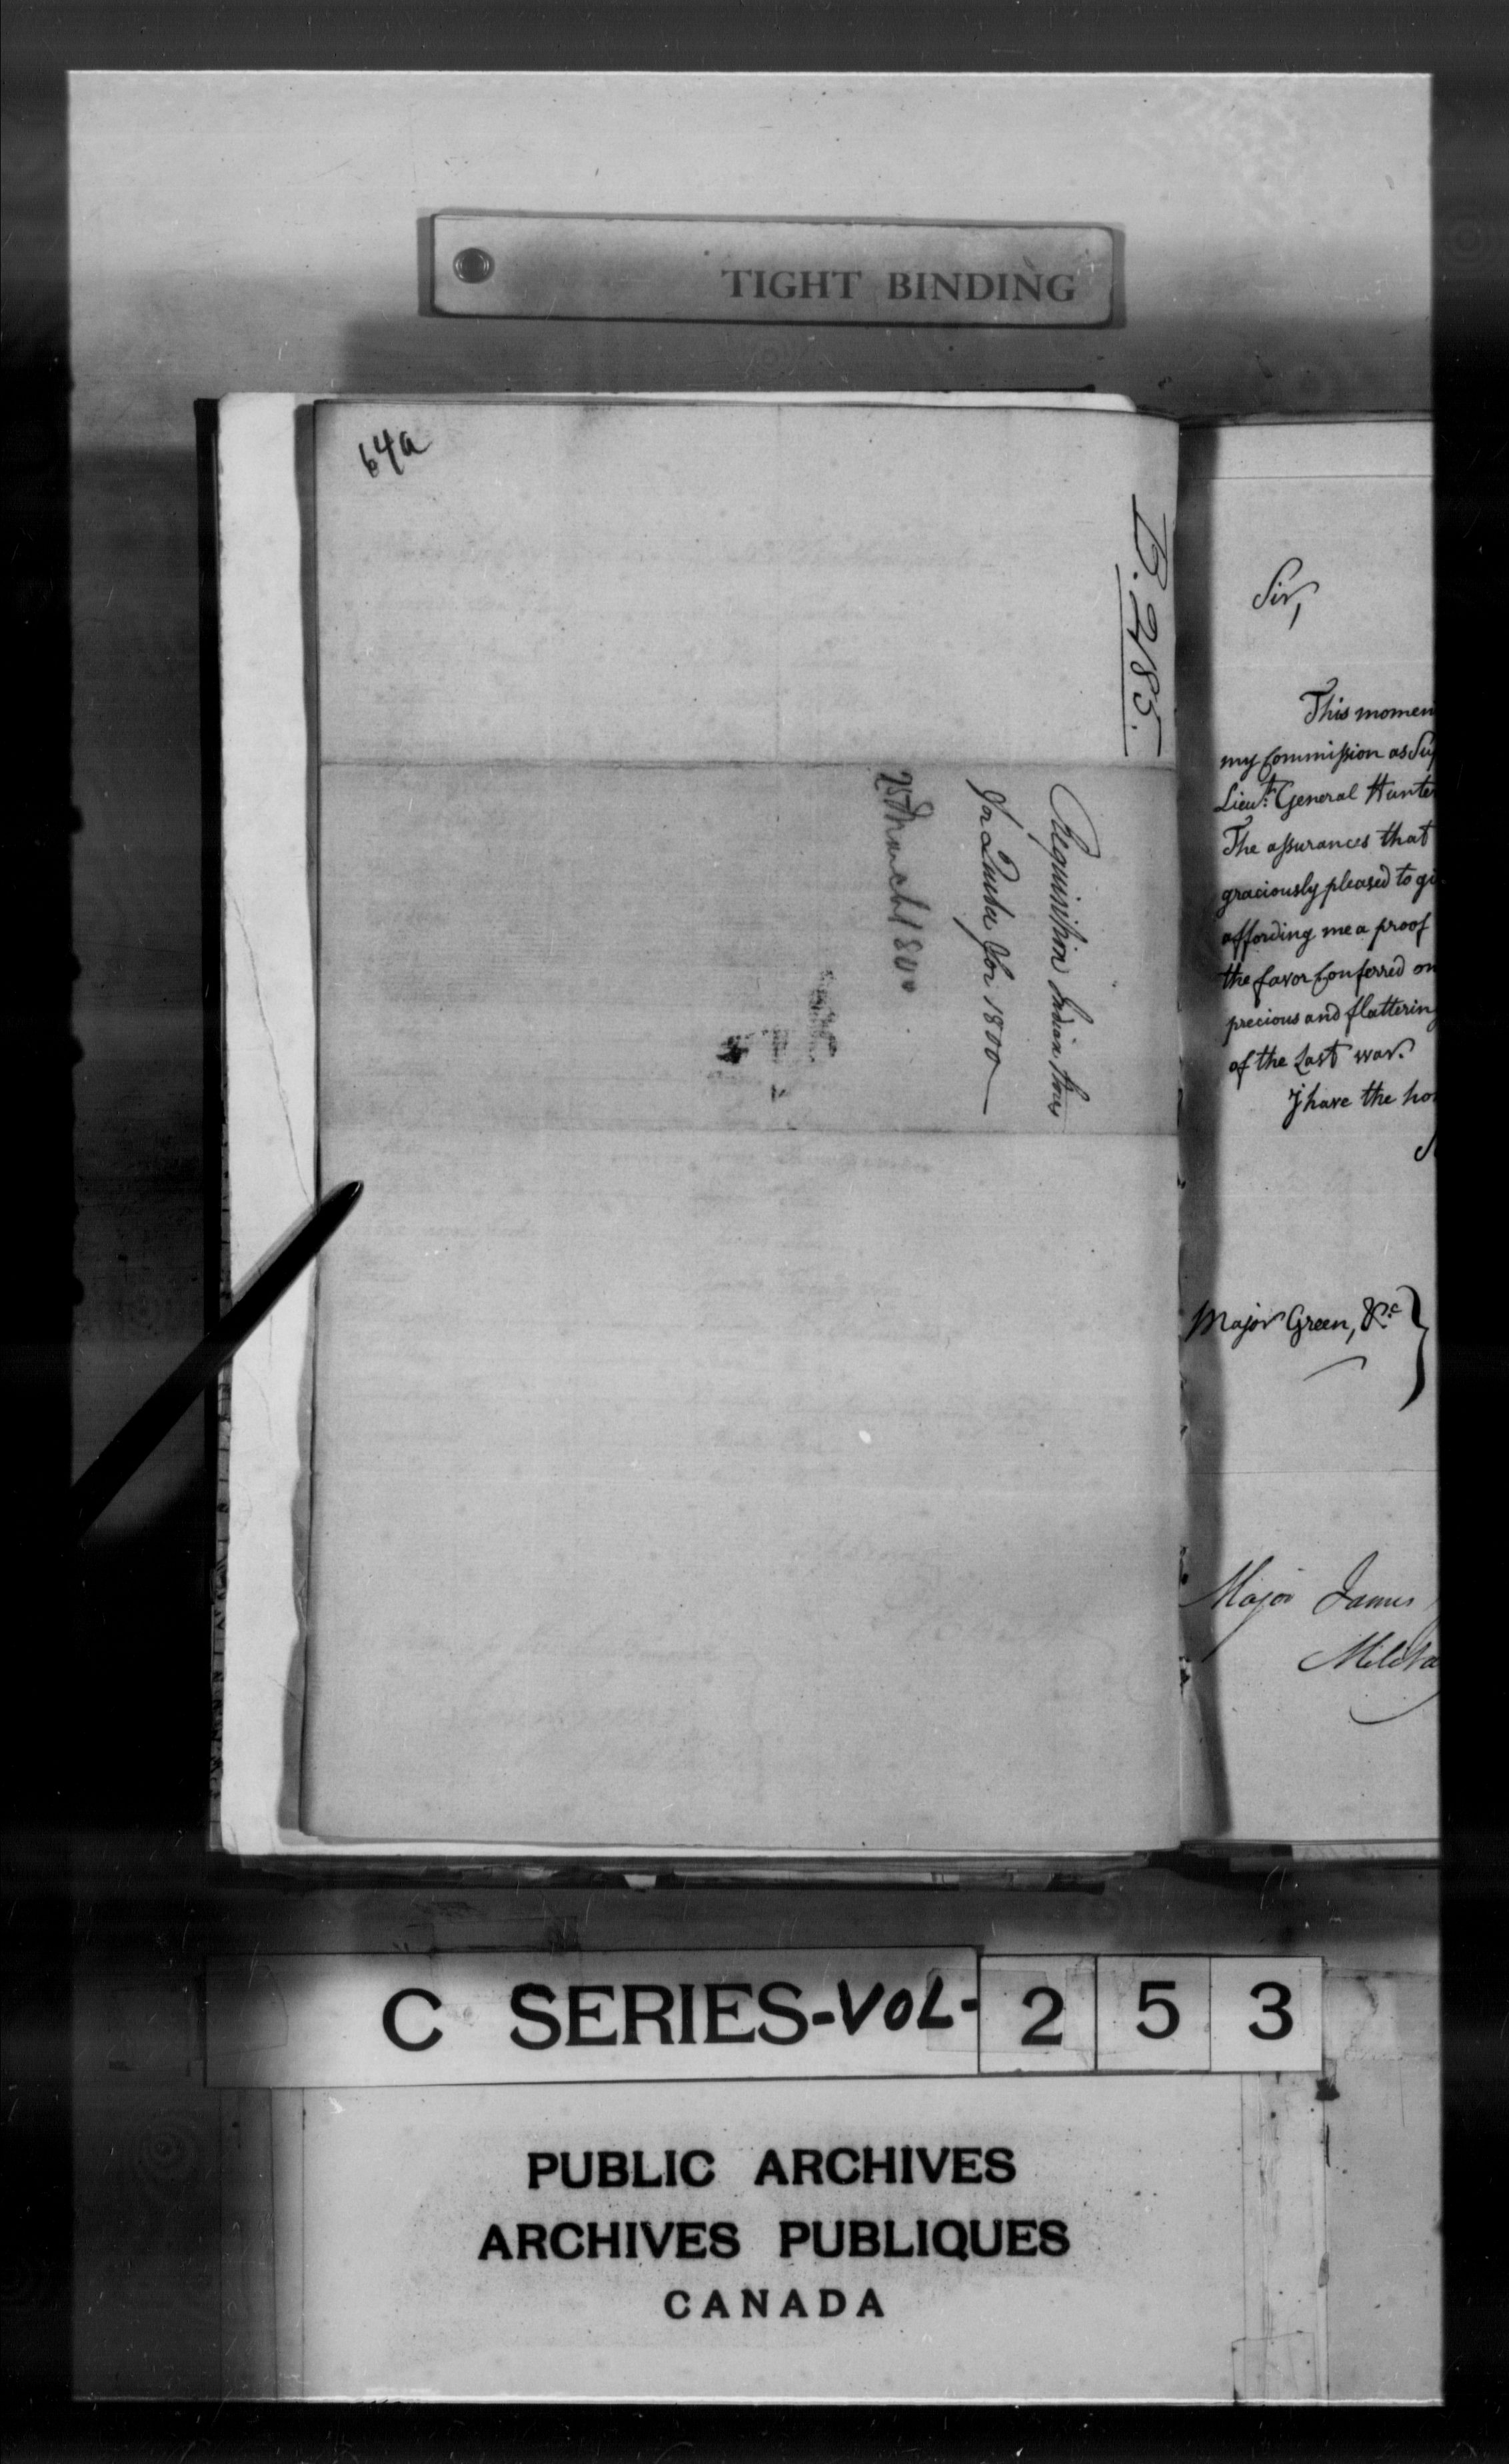 TIGHT BINDING
64a
B. 285.
Requisition Indian Stores
for Quebec for 1800
25th March 1800
Sir,
This momen
my Commission as Sup
Lieut. General Hunte
The assurances that
graciously pleased to gi
affording me a proof
the favor Conferred on
precious and flattering
of the Last war.
I have the ho
Major Green, &c.
Major James
Milita
C SERIES-VOL- 2 5 3
PUBLIC ARCHIVES
ARCHIVES PUBLIQUES
CANADA